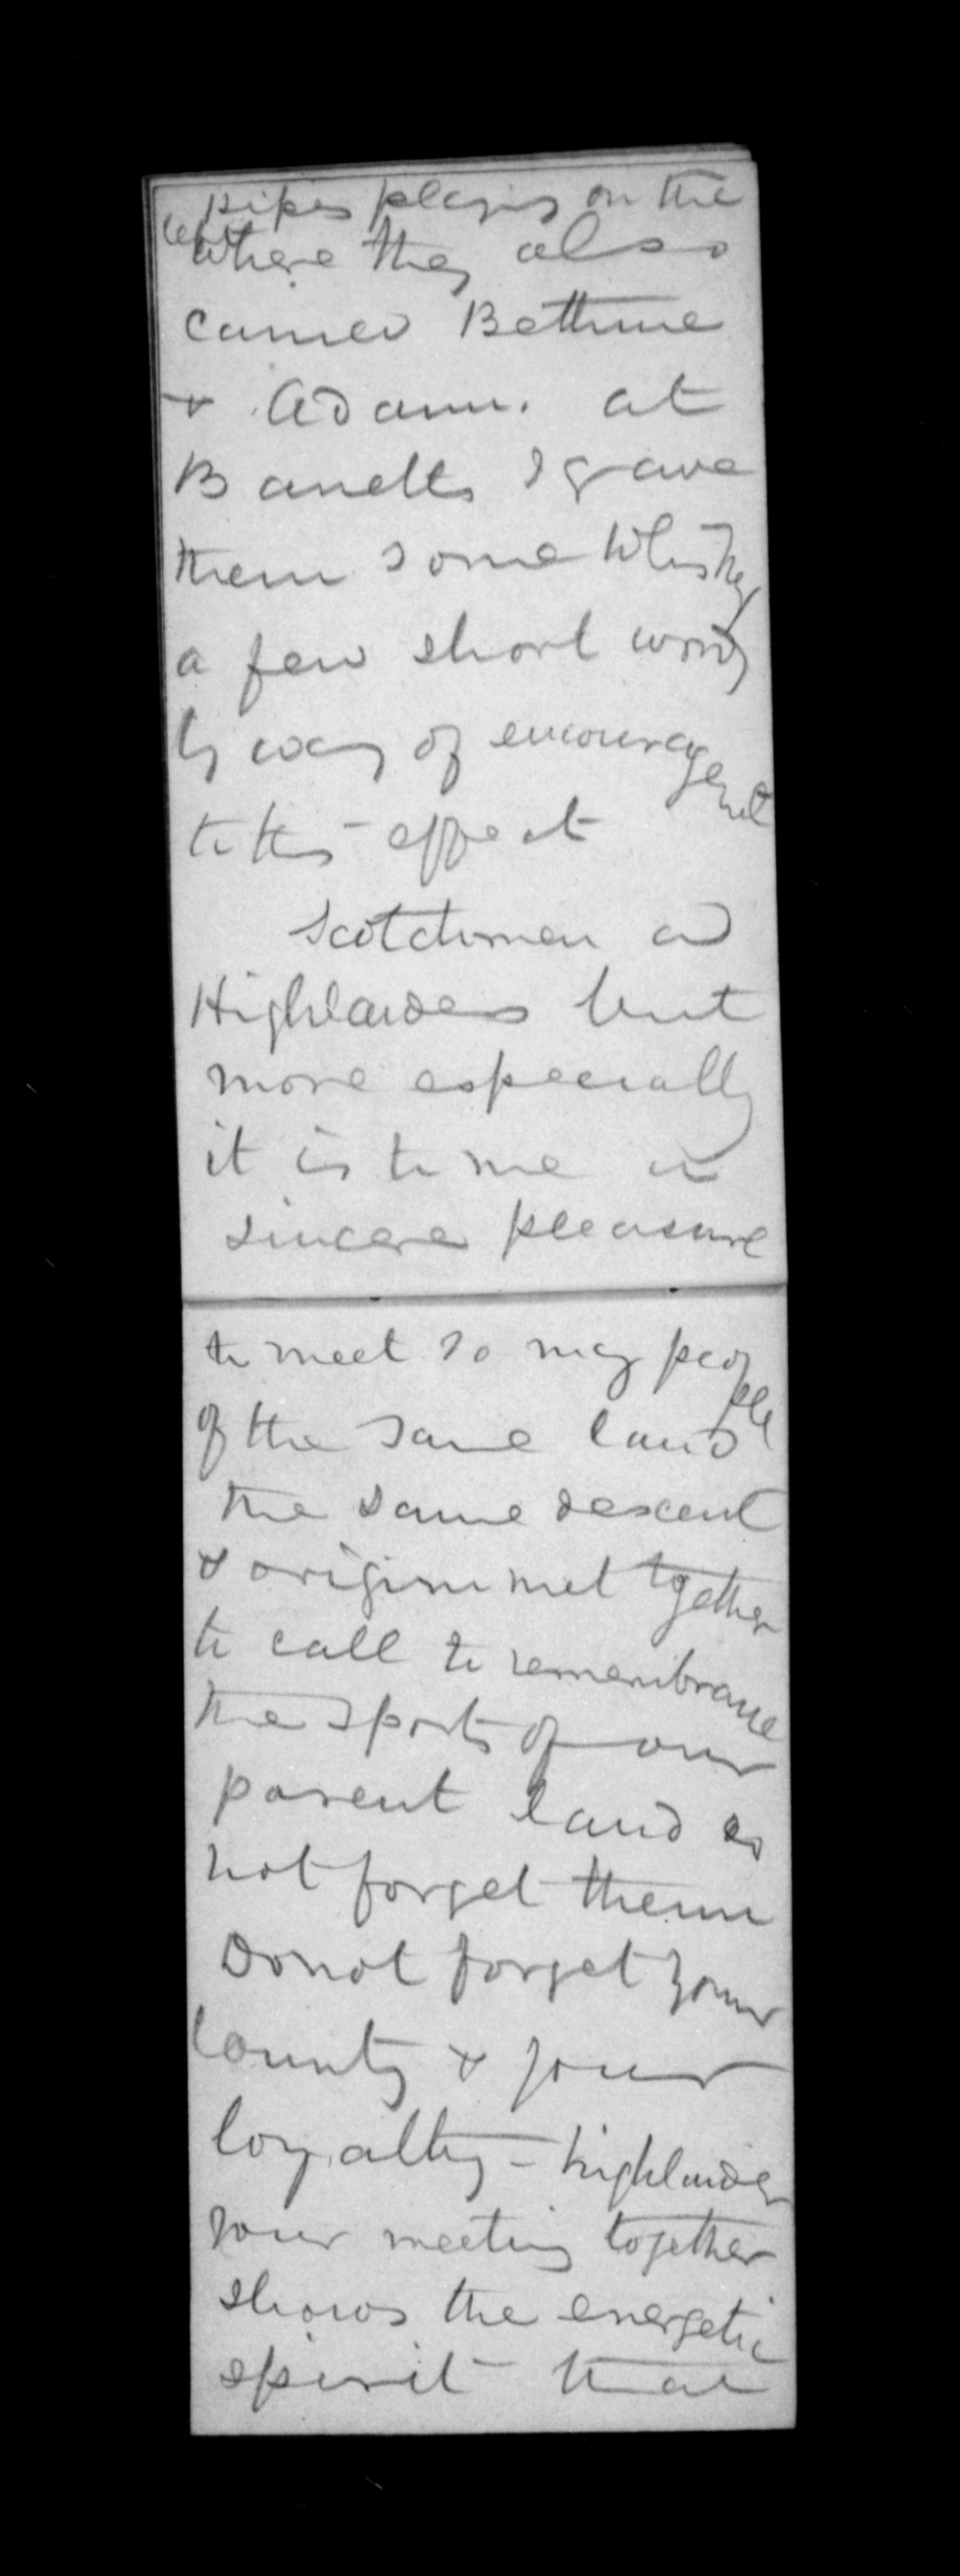 pipes playing on the
where they also
carried Bethune
& Adam. at
Bancks I gave
them some Whiskey
a few short words
by way of encouragement
to this effect
Scotchmen and
Highlanders but
more especially
it is to me a
sincere pleasure
to meet so many people
of the same land
the same descent
& origin met together
to call to remembrance
the sports of our
parent land do
not forget them
Do not forget your
County & your
loyalty - highlanders
your meeting together
shows the energetic
spirit that